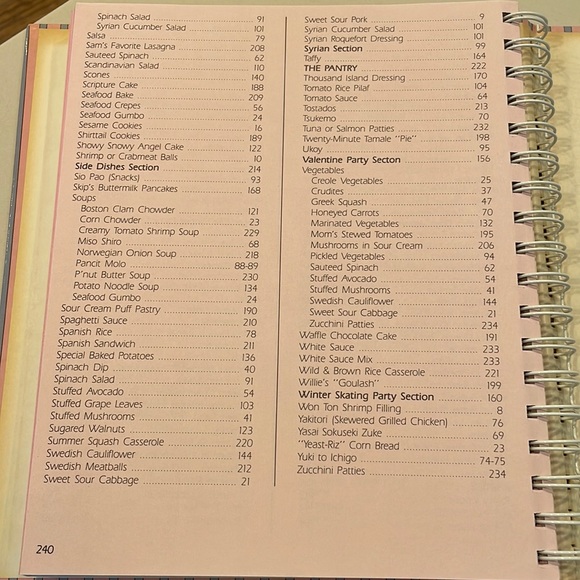 Spinach Salad 91
Syrian Cucumber Salad 101
Salsa 79
Sam's Favorite Lasagna 208
Sauteed Spinach 62
Scandinavian Salad 110
Scones 140
Scripture Cake 188
Seafood Bake 209
Seafood Crepes 56
Seafood Gumbo 24
Sesame Cookies 16
Shirttail Cookies 189
Showy Snowy Angel Cake 122
Shrimp or Crabmeat Balls 10
Side Dishes Section 214
Sio Pao (Snacks) 93
Skip's Buttermilk Pancakes 168
Soups
Boston Clam Chowder 121
Corn Chowder 23
Creamy Tomato Shrimp Soup 229
Miso Shiro 68
Norwegian Onion Soup 218
Pancit Molo 88-89
P'nut Butter Soup 230
Potato Noodle Soup 134
Seafood Gumbo 24
Sour Cream Puff Pastry 190
Spaghetti Sauce 210
Spanish Rice 78
Spanish Sandwich 211
Special Baked Potatoes 136
Spinach Dip 40
Spinach Salad 91
Stuffed Avocado 54
Stuffed Grape Leaves 103
Stuffed Mushrooms 41
Sugared Walnuts 123
Summer Squash Casserole 220
Swedish Cauliflower 144
Swedish Meatballs 212
Sweet Sour Cabbage 21
Sweet Sour Pork 9
Syrian Cucumber Salad 101
Syrian Roquefort Dressing 101
Syrian Section 99
Taffy 164
THE PANTRY 222
Thousand Island Dressing 170
Tomato Rice Pilaf 104
Tomato Sauce 64
Tostados 213
Tsukemo 70
Tuna or Salmon Patties 232
Twenty-Minute Tamale "Pie" 198
Ukoy 95
Valentine Party Secton 156
Vegetables
Creole Vegetables 25
Crudites 37
Greek Squash 47
Honeyed Carrots 70
Marinated Vegetables 132
Mom's Stewed Tomatoes 195
Mushrooms in Sour Cream 206
Pickled Vegetables 94
Sauteed Spinach 62
Stuffed Avocado 54
Stuffed Mushrooms 41
Swedish Cauliflower 144
Sweet Sour Cabbage 21
Zucchini Patties 234
Waffle Chocolate Cake 191
White Sauce 233
White Sauce Mix 233
Wild & Brown Rice Casserole 221
Willie's "Goulash" 199
Winter Skating Party Section 160
Won Ton Shrimp Filling 8
Yakitori (Skewered Grilled Chicken) 76
Yasai Sokuseki Zuke 69
"Yeast-Riz" Corn Bread 23
Yuki to Ichigo 74-75
Zucchini Patties 234
240